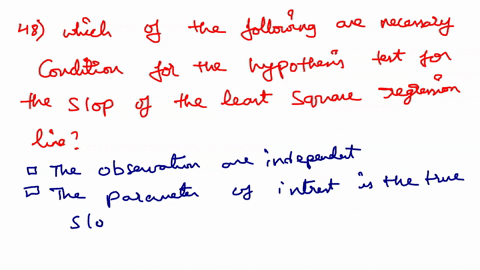 48) which of the following are necessary
Condition for the hypothesis test for
the slop of the least square regression
line?
□ The observation are independent
□ The parameter of intrest is the true
slo